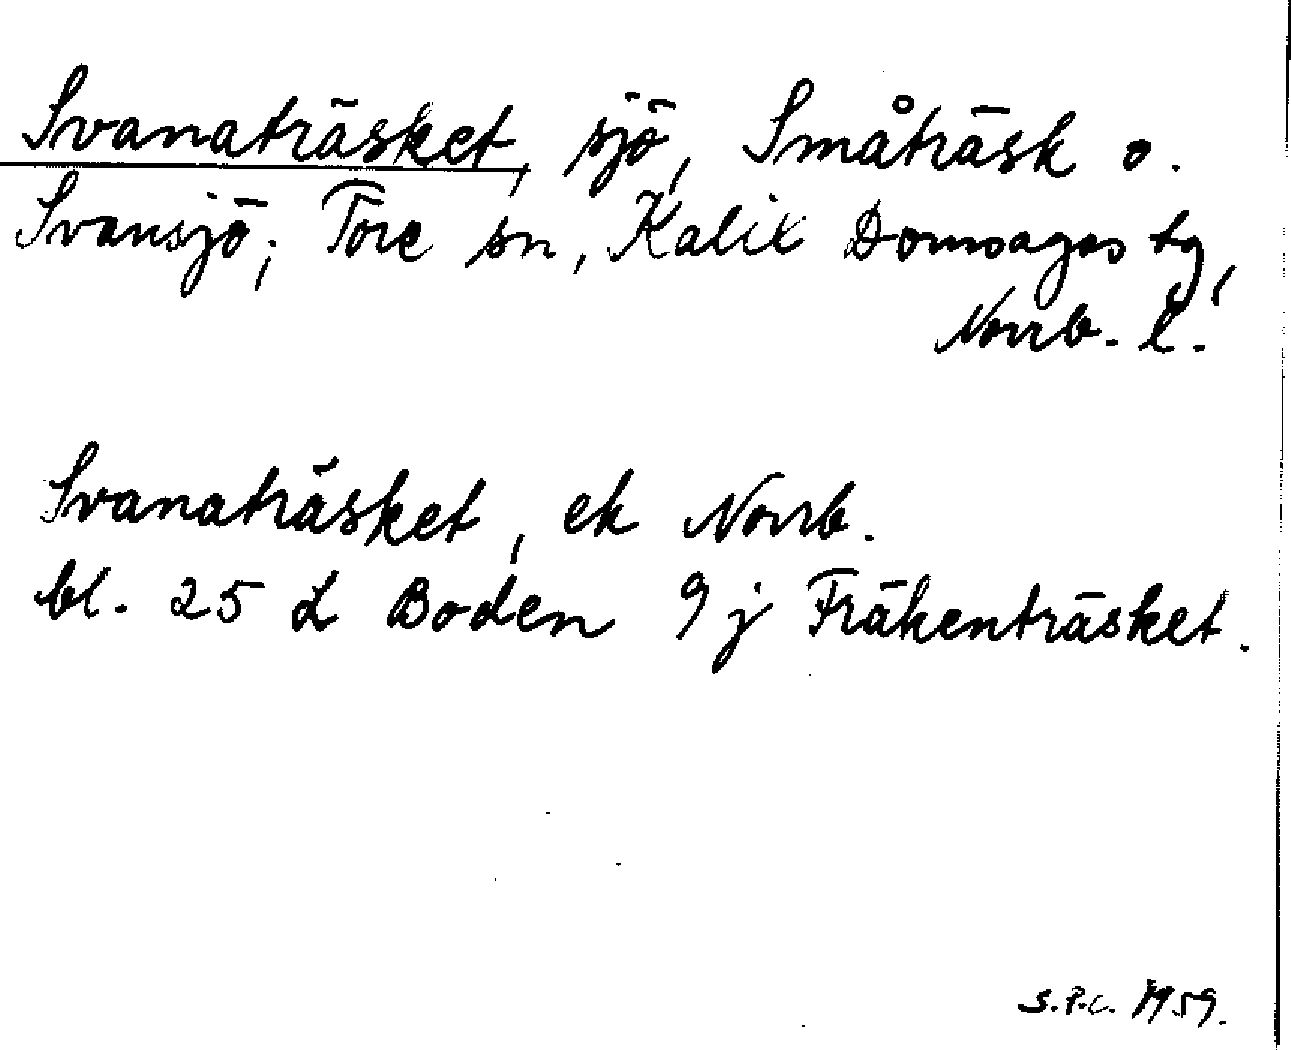 Svanaträsket, sjö, Småträsk o.
Svansjö; Töre sn, Kalix Domsagas tg,
Norrb. l.
Svanaträsket, ek Norrb.
bl. 25 L Boden 9 j Fräkenträsket.
S.P.C. 1959.